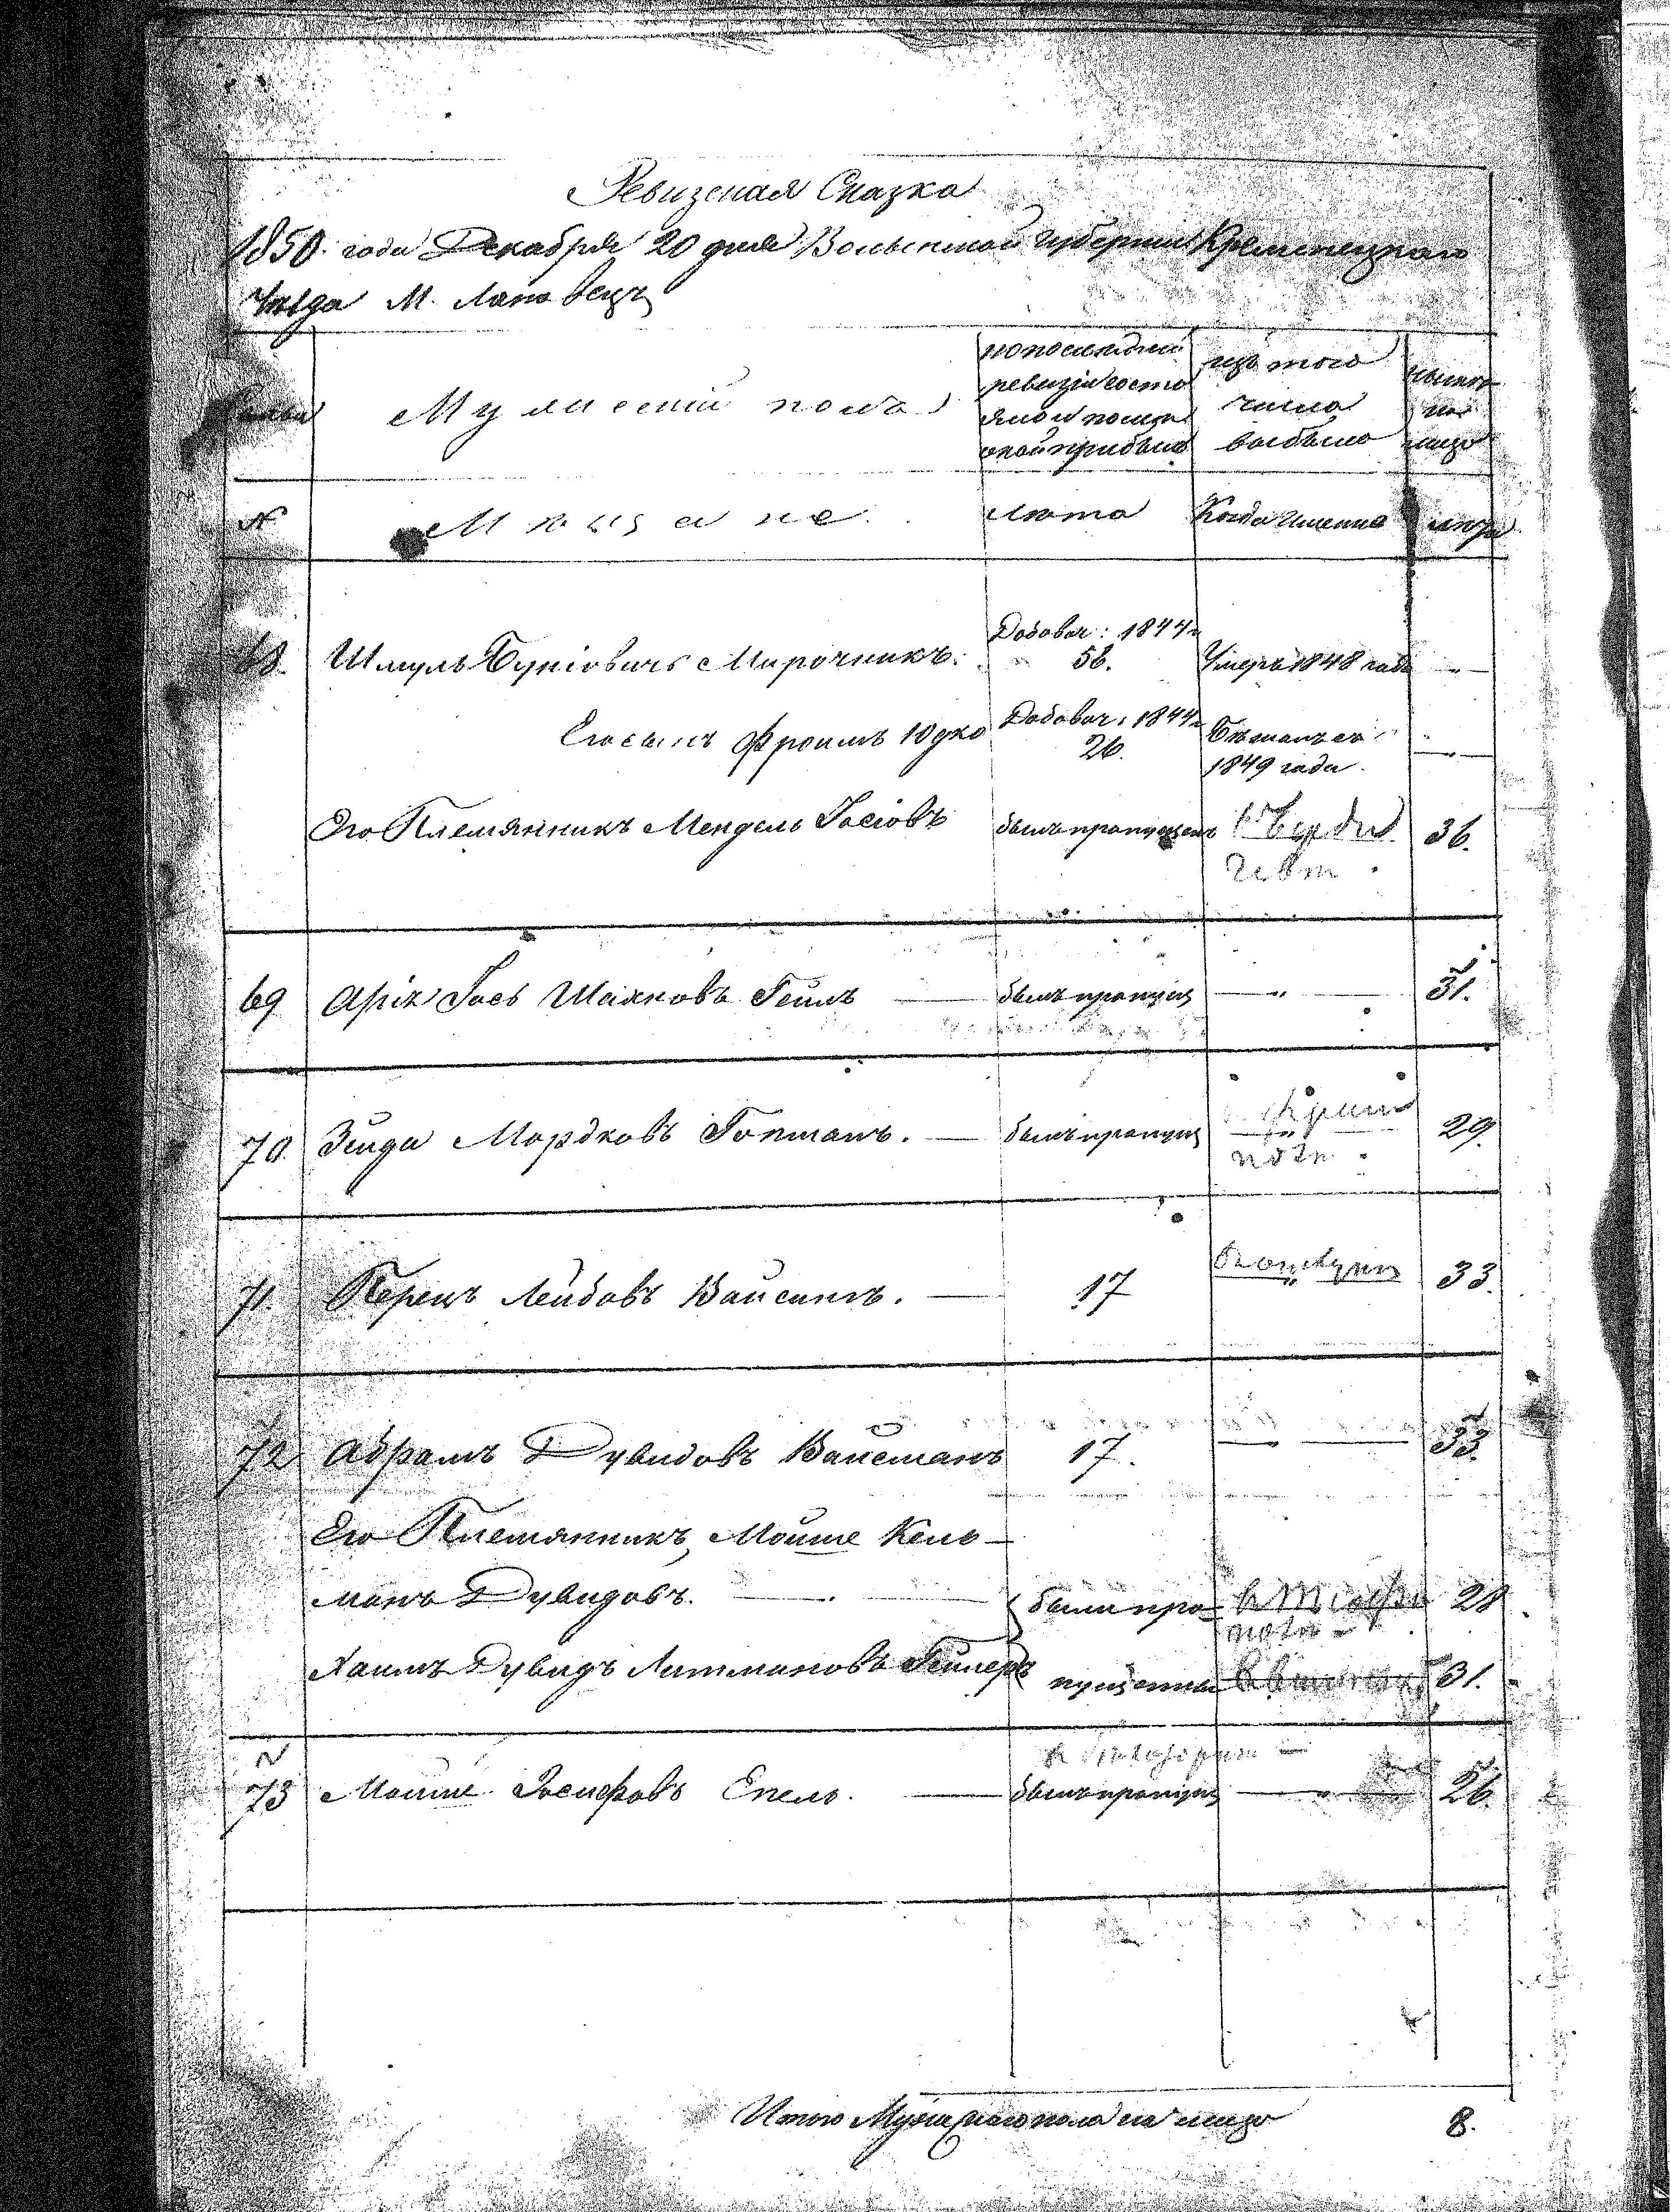 Ревизская Сказка
1850 года Декабря 20 дня Волынской Губернии Кременецкаго
Уезда М. Лановець
Семьи Мужеский пола по последней ревизіи состояло и после оной прибыло из того числа выбыло ныне на лицо
№ Мещане лета Когда именно лета
68. Шмуль Буніовичъ Мирочникъ. Добавоч: 1844 г. 56. Умеръ 1848 года
Его сынъ Фроимъ Юдко Добавоч: 1844 г. 26. 1849 года.
Его Племянникъ Мендель Іосіовъ былъ пропущенъ 36.
69 Аріх Іось Шаяковъ былъ пропущ 31.
70. Зейда Мордковъ былъ пропущ 29.
71. Перецъ Лейбовъ 17 33.
72 Абрамъ Дувидовъ Вайсманъ 17. 33.
Его Племянникъ, Мошие Кель-
манъ Дувидовъ. были про- 28
Хаимъ Дувидъ Литмановъ пущенны 31.
73 Мошие Іосифовъ Епель. былъ пропущ 26.
Итого Мужескаго пола на лицо 8.